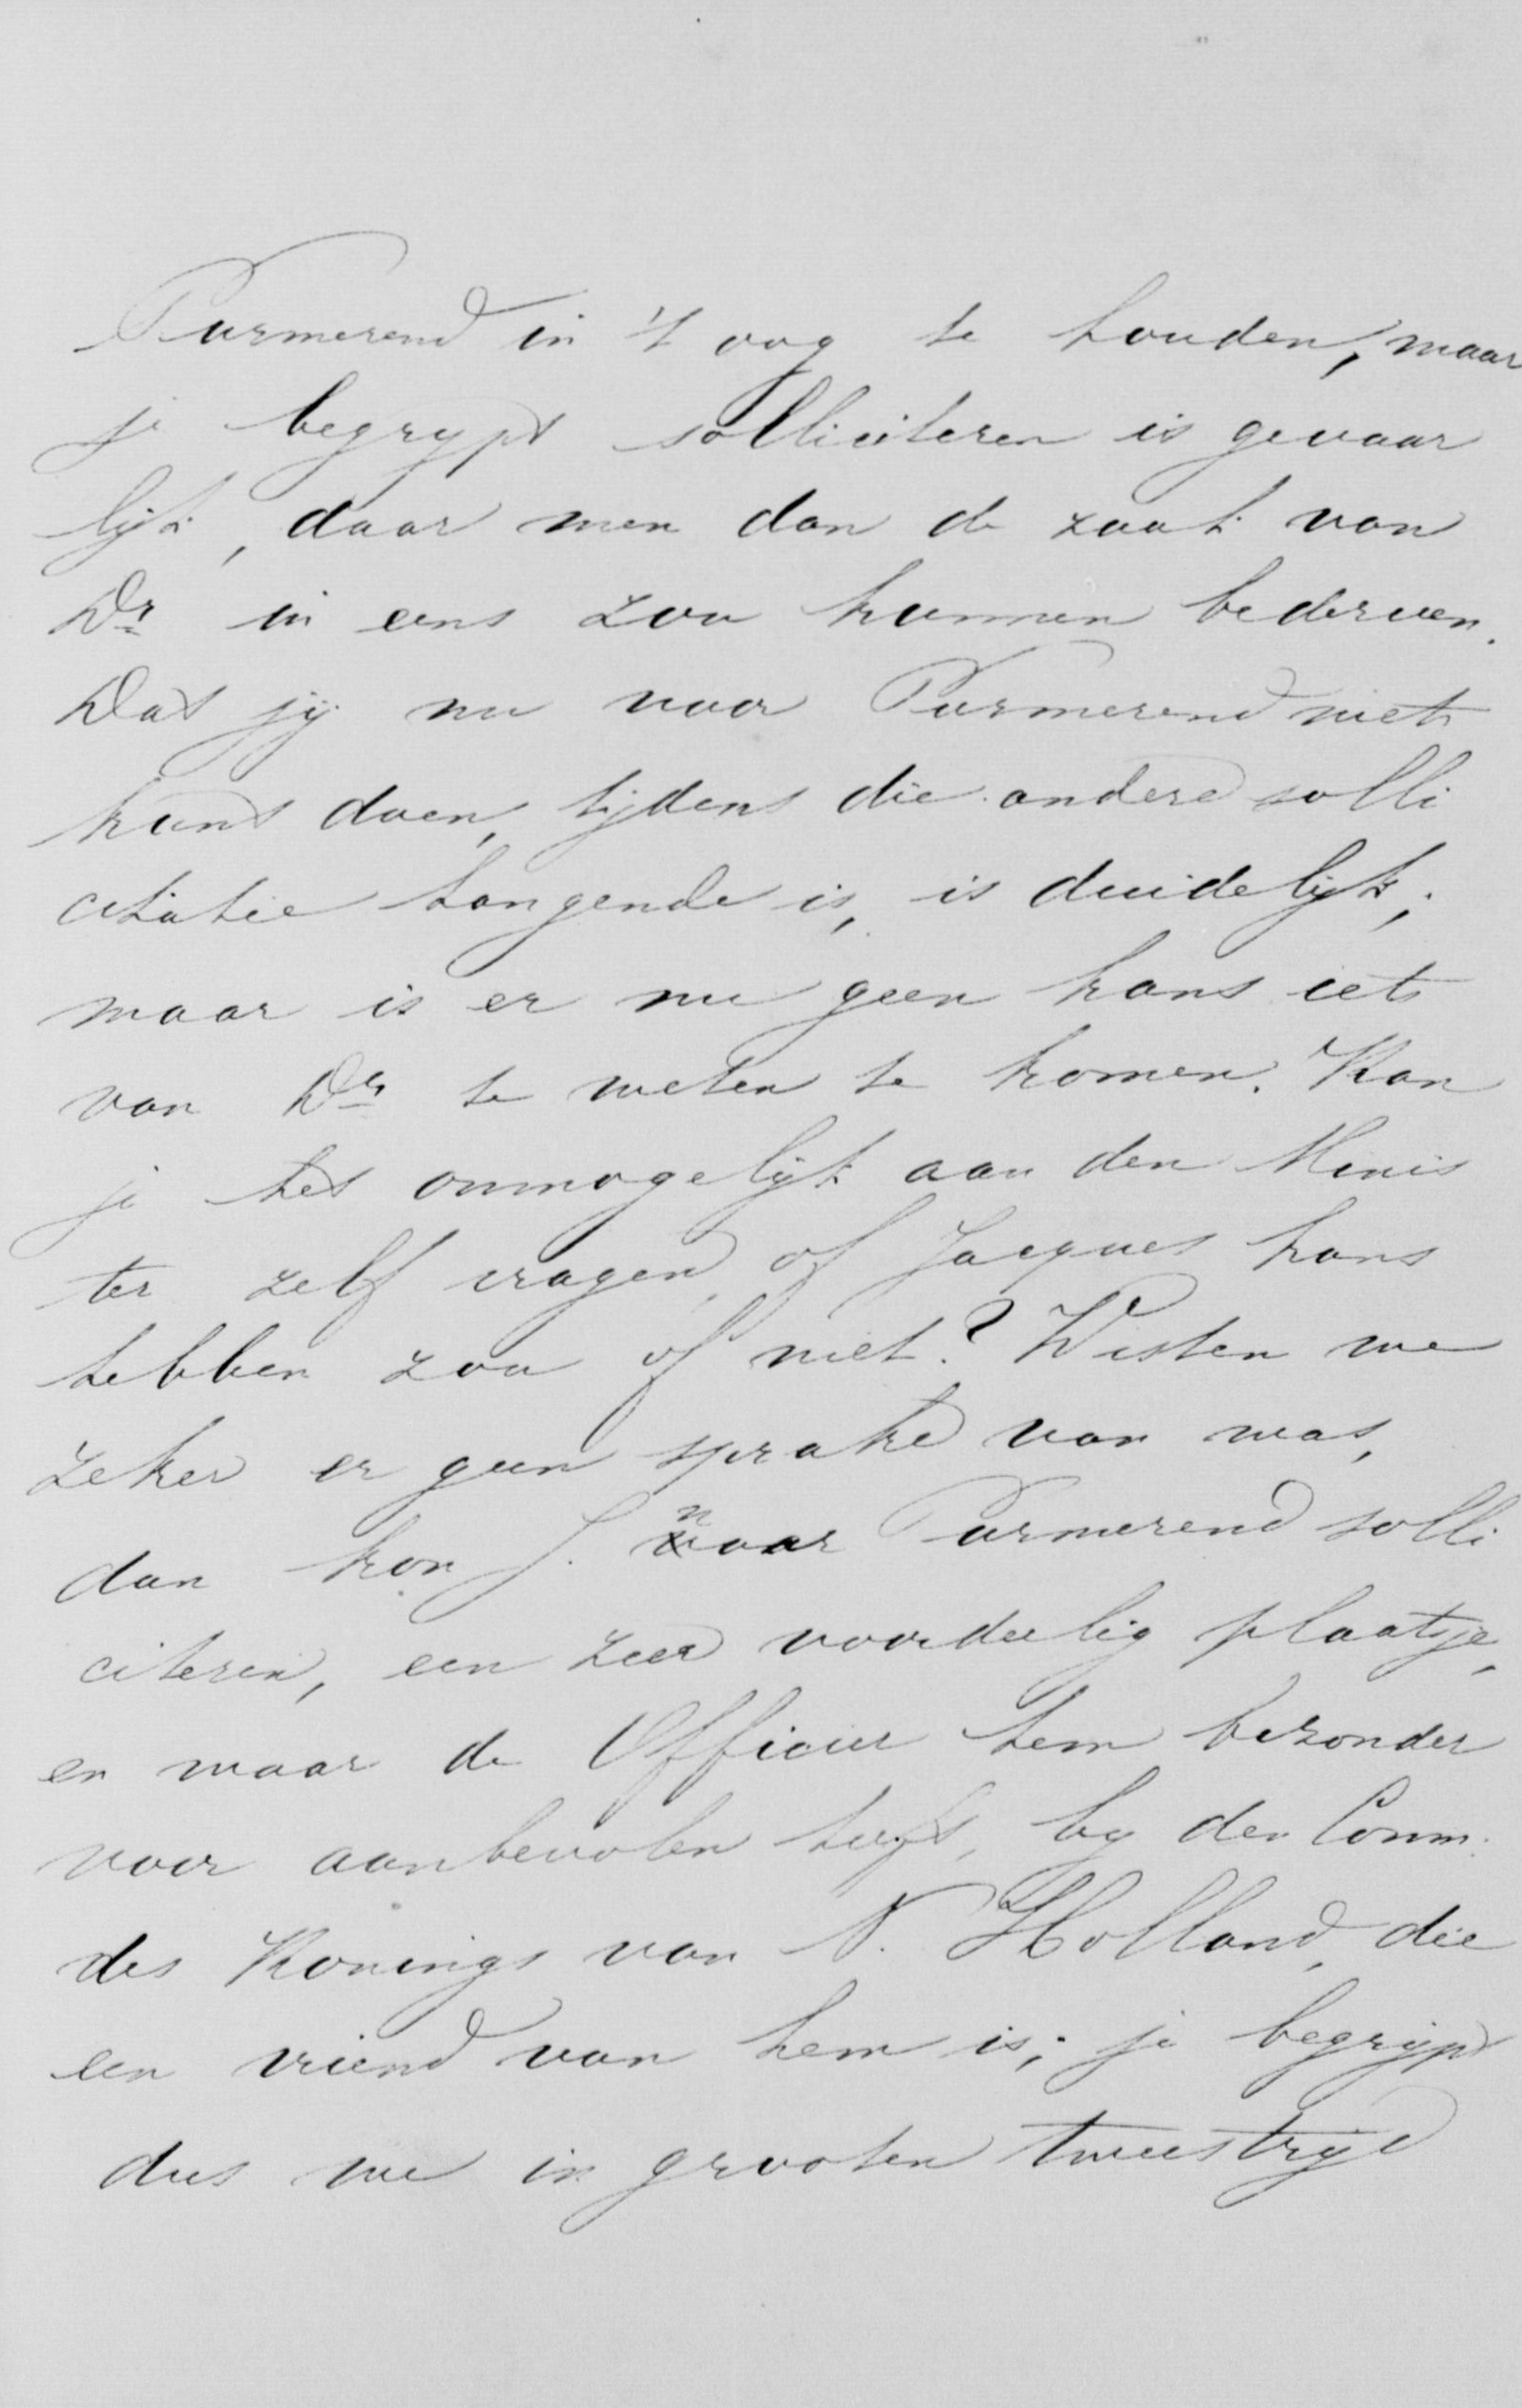 Purmerend in 't oog te houden, maar
je begrypt solliciteren is gevaar
lijk, daar men dan de zaak van
Dr in eens zou kunnen bederven.
Dat jij nu voor Purmerend niets
kunt doen, tijdens die andere solli
citatie hangende is, is duidelijk;
maar is er nu geen kans iets
van Dr te weten te komen. Kan
je het onmogelijk aan den Minis
ter zelf vragen, of Jacques kans
hebben zou of niet? Wisten we
zeker er geen sprake van was,
dan kon J. naar Purmerend solli
citeren, een zeer voordeelig plaatsje,
en waar de Officier hem bezonder
voor aanbevolen heeft, by den Comm.
des Konings van N. Holland, die
een vriend van hem is; je begrijpt
dus we in grooten tweestrijd